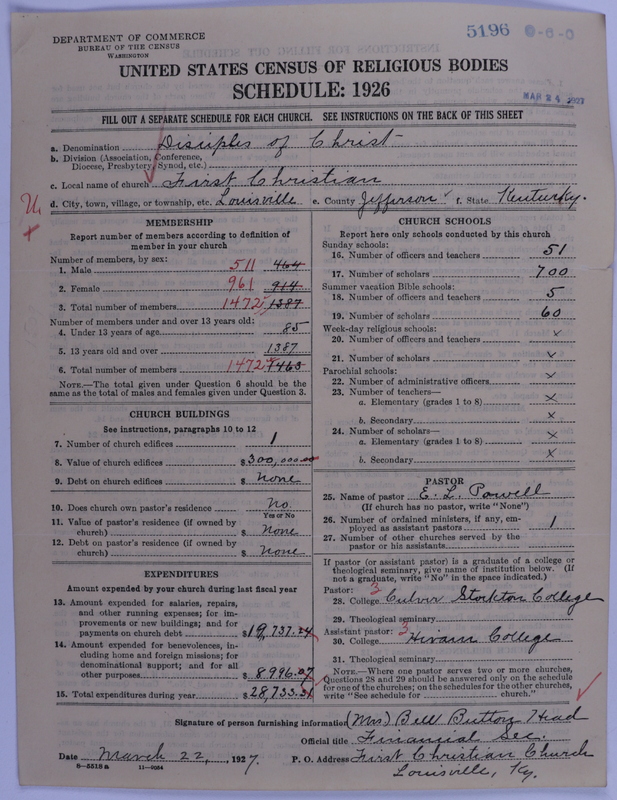 5196 0-6-0
DEPARTMENT OF COMMERCE
BUREAU OF THE CENSUS
WASHINGTON
UNITED STATES CENSUS OF RELIGIOUS BODIES
SCHEDULE: 1926
MAR 24 1927
FILL OUT A SEPARATE SCHEDULE FOR EACH CHURCH. SEE INSTRUCTIONS ON THE BACK OF THIS SHEET
a. Denomination Disciples of Christ
b. Division (Association, Conference,
Diocese, Presbytery, Synod, etc.)
c. Local name of church First Christian
d. City, town, village, or township, etc. Louisville e. County Jefferson f. State Kentucky.
MEMBERSHIP
Report number of members according to definition of
member in your church
Number of members, by sex:
1. Male 511 464
2. Female 961 914
3. Total number of members 1472 1387
Number of members under and over 13 years old:
4. Under 13 years of age 85
5. 13 years old and over 1387
6. Total number of members 1472 1463
NOTE.—The total given under Question 6 should be the
same as the total of males and females given under Question 3.
CHURCH BUILDINGS
See instructions, paragraphs 10 to 12
7. Number of church edifices 1
8. Value of church edifices $300,000.00
9. Debt on church edifices $ None
10. Does church own pastor's residence No
Yes or No
11. Value of pastor's residence (if owned by
church) $ None
12. Debt on pastor's residence (if owned by
church) $ None
EXPENDITURES
Amount expended by your church during last fiscal year
13. Amount expended for salaries, repairs,
and other running expenses; for im-
provements or new buildings; and for
payments on church debt $19,737.24
14. Amount expended for benevolences, in-
cluding home and foreign missions; for
denominational support; and for all
other purposes $8.996.07
15. Total expenditures during year $28,733.31
CHURCH SCHOOLS
Report here only schools conducted by this church
Sunday schools:
16. Number of officers and teachers 51
17. Number of scholars 700
Summer vacation Bible schools:
18. Number of officers and teachers 5
19. Number of scholars 60
Week-day religious schools:
20. Number of officers and teachers x
21. Number of scholars x
Parochial schools:
22. Number of administrative officers x
23. Number of teachers—
a. Elementary (grades 1 to 8) x
b. Secondary x
24. Number of scholars—
a. Elementary (grades 1 to 8) x
b. Secondary x
PASTOR
25. Name of pastor E. L. Powell
(If church has no pastor, write "None")
26. Number of ordained ministers, if any, em-
ployed as assistant pastors 1
27. Number of other churches served by the
pastor or his assistants
If pastor (or assistant pastor) is a graduate of a college or
theological seminary, give name of institution below. (If
not a graduate, write "No" in the space indicated.)
Pastor: 3
28. College Culver Stockton College
29. Theological seminary
Assistant pastor: 3
30. College Hiram College
31. Theological seminary
NOTE.—Where one pastor serves two or more churches,
Questions 28 and 29 should be answered only on the schedule
for one of the churches; on the schedules for the other churches,
write "See schedule for church."
Signature of person furnishing information (Mrs) Bell Button Head
Official title Financial Sec.
Date March 22, 1927. P. O. Address First Christian Church
8-5518a 11-9084 Louisville, Ky.